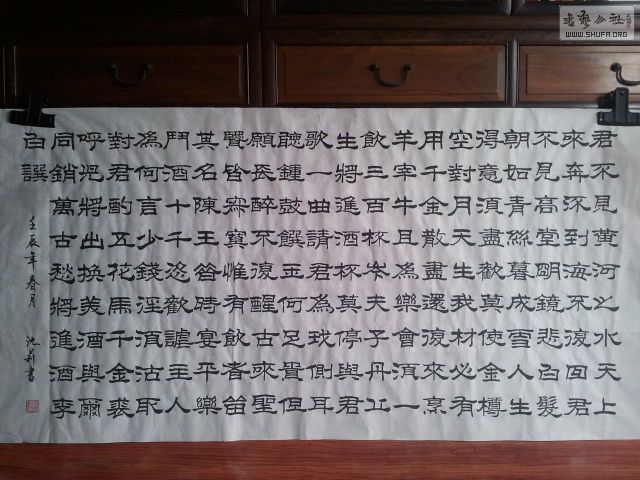 君不見黃河之水天上
來奔流到海不復回君
不見高堂明鏡悲白髮
朝如青絲暮成雪人生
得意須盡歡莫使金樽
空對月天生我材必有
用千金散盡還復來烹
羊宰牛且為樂會須一
飲三百杯岑夫子丹丘
生將進酒杯莫停與君
歌一曲請君為我側耳
聽鐘鼓饌玉何足貴但
願長醉不復醒古來聖
賢皆寂寞惟有飲者留
其名陳王昔時宴平樂
鬥酒十千恣歡謔主人
為何言少錢徑須沽取
對君酌五花馬千金裘
呼兒將出換美酒與爾
同銷萬古愁將進酒李
白譔
壬辰年春月 沈莉書
書藝公社
WWW.SHUFA.ORG